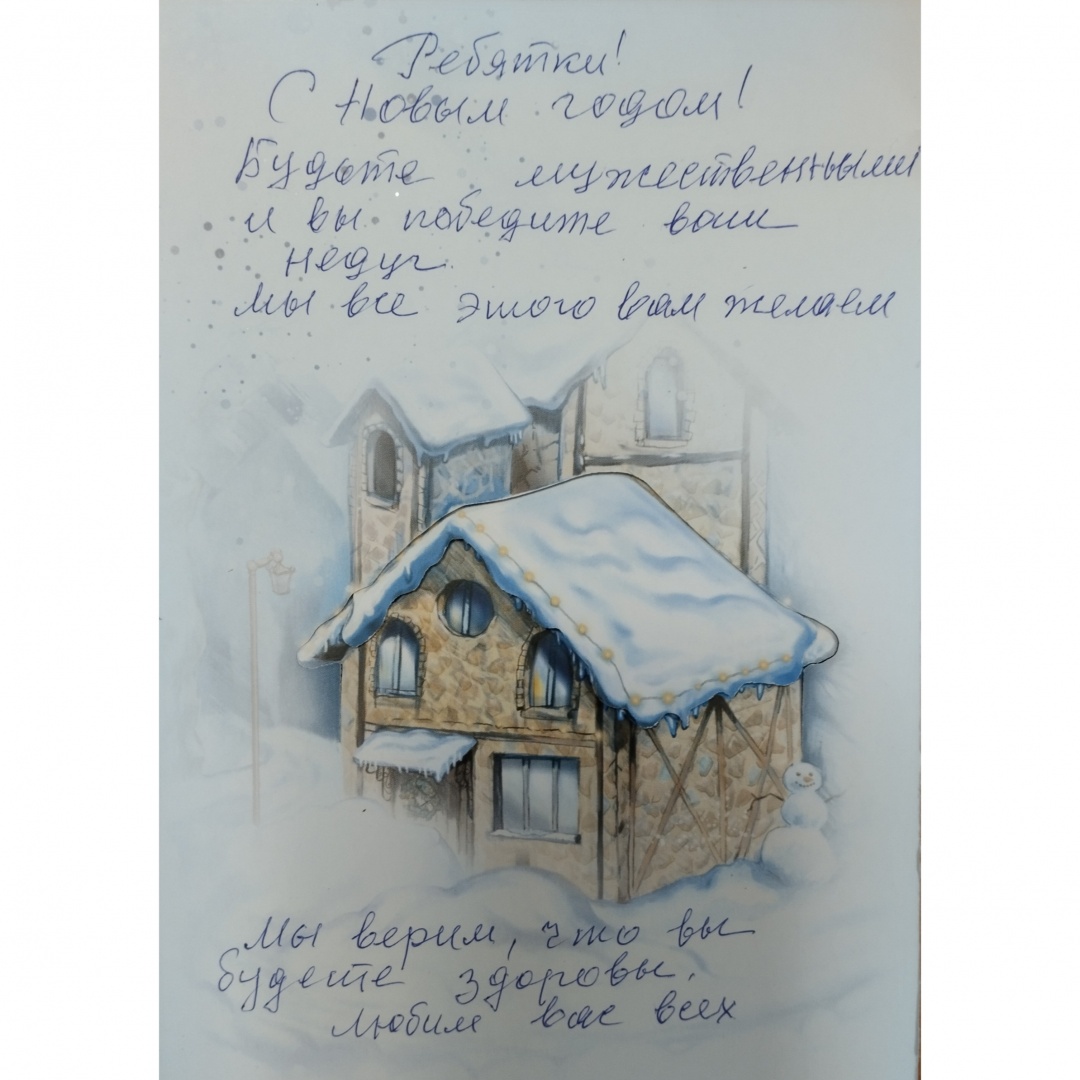 Ребятки!
С Новым годом!
Будьте мужественными
и вы победите ваш
недуг.
Мы все этого вам желаем
Мы верим, что вы
будете здоровы.
Любим вас всех